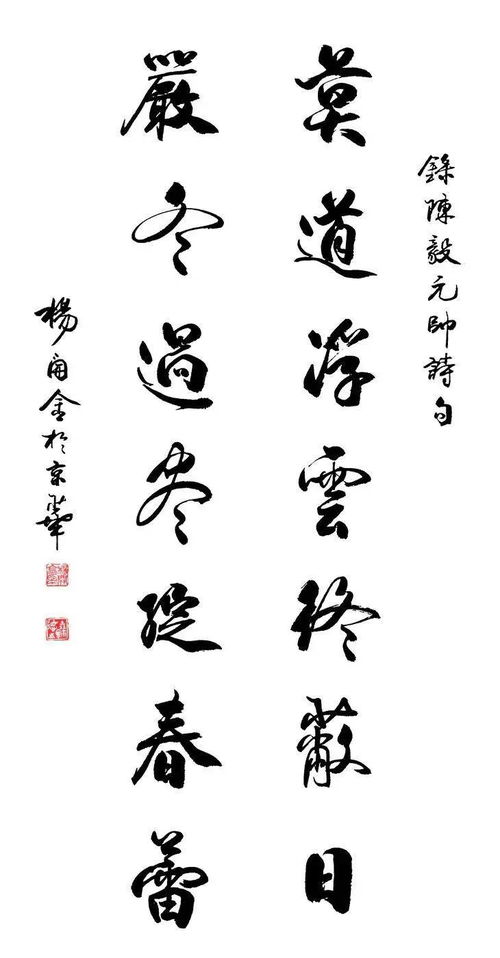 錄陳毅元帥詩句
莫道浮雲終蔽日
嚴冬過尽綻春蕾
楊金於京華